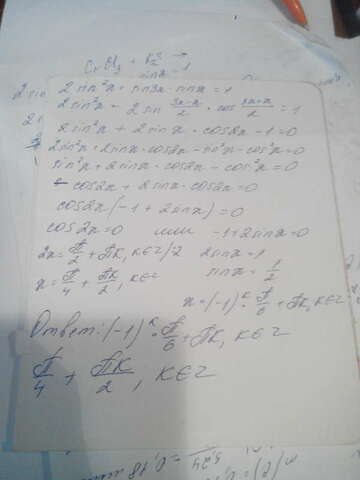 2 sin²x + sin3x - sinx = 1
2sin²x + 2 sin (3x-x)/2 · cos (3x+x)/2 = 1
2sin²x + 2sinx · cos2x - 1 = 0
2sin²x + 2sinx · cos2x - sin²x - cos²x = 0
sin²x + 2sinx · cos2x - cos²x = 0
- cos2x + 2sinx · cos2x = 0
cos2x (-1 + 2sinx) = 0
cos2x = 0 или -1+2sinx = 0
2x = π/2 + πk, k∈z /:2 2sinx = 1
x = π/4 + πk/2, k∈z sinx = 1/2
x = (-1)^k · π/6 + πk, k∈z
Ответ: (-1)^k · π/6 + πk, k∈z
π/4 + πk/2, k∈z